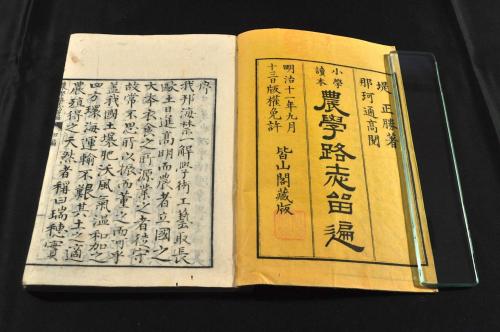 堀正勝著
那珂通高閲
小學
讀本
農學路志留遍
明治十一年九月
十三日版權免許
皆山閣藏版
序
我邦海禁一解學術工藝取長
歐土日進高明而農者立國之
大本衣食之所源業之者徒守
故常不思所以而之而可乎
蓋我國土壤肥沃風氣温和加之
四方環海運輸不艱其土之適
農殖得之天然者稱曰瑞穗實